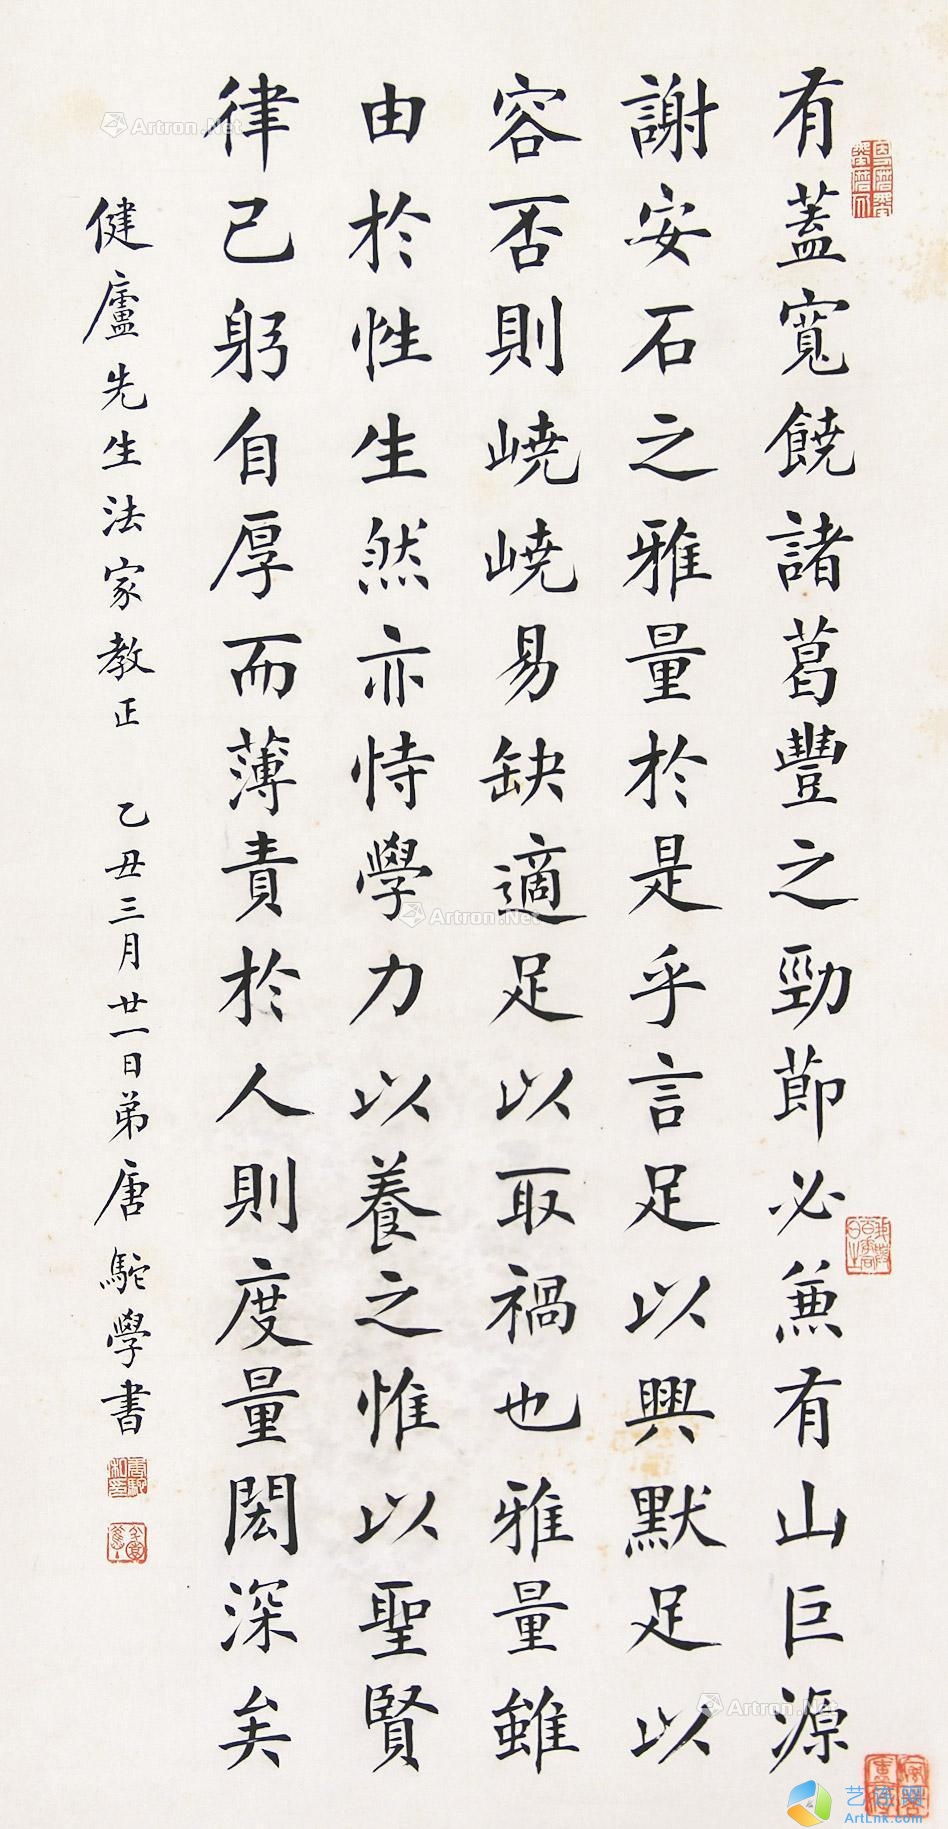 有蓋寬饒諸葛豐之勁節必兼有山巨源
謝安石之雅量於是乎言足以興默足以
容否則嶢嶢易缺適足以取禍也雅量雖
由於性生然亦恃學力以養之惟以聖賢
律己躬自厚而薄責於人則度量閎深矣
健廬先生法家教正 乙丑三月廿一日弟唐駝學書
Artron.Net
Artron.Net
Artron.Net
艺点网
ArtLnk.com